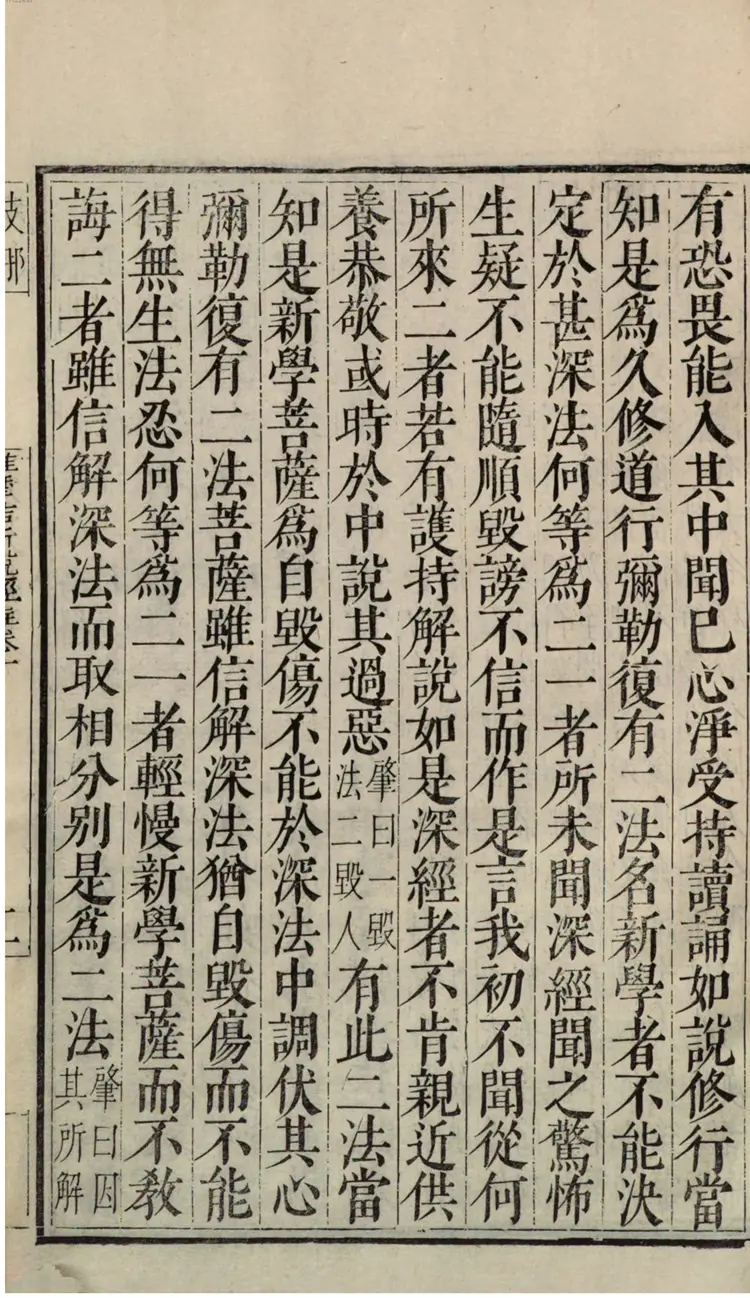 有恐畏能入其中聞已心淨受持讀誦如說修行當
知是爲久修道行彌勒復有二法名新學者不能決
定於甚深法何等爲二一者所未聞深經聞之驚怖
生疑不能隨順毀謗不信而作是言我初不聞從何
所來二者若有護持解說如是深經者不肯親近供
養恭敬或時於中說其過惡肇曰一毀法二毀人有此二法當
知是新學菩薩爲自毀傷不能於深法中調伏其心
彌勒復有二法菩薩雖信解深法猶自毀傷而不能
得無生法忍何等爲二一者輕慢新學菩薩而不敎
誨二者雖信解深法而取相分别是爲二法肇曰因其所解